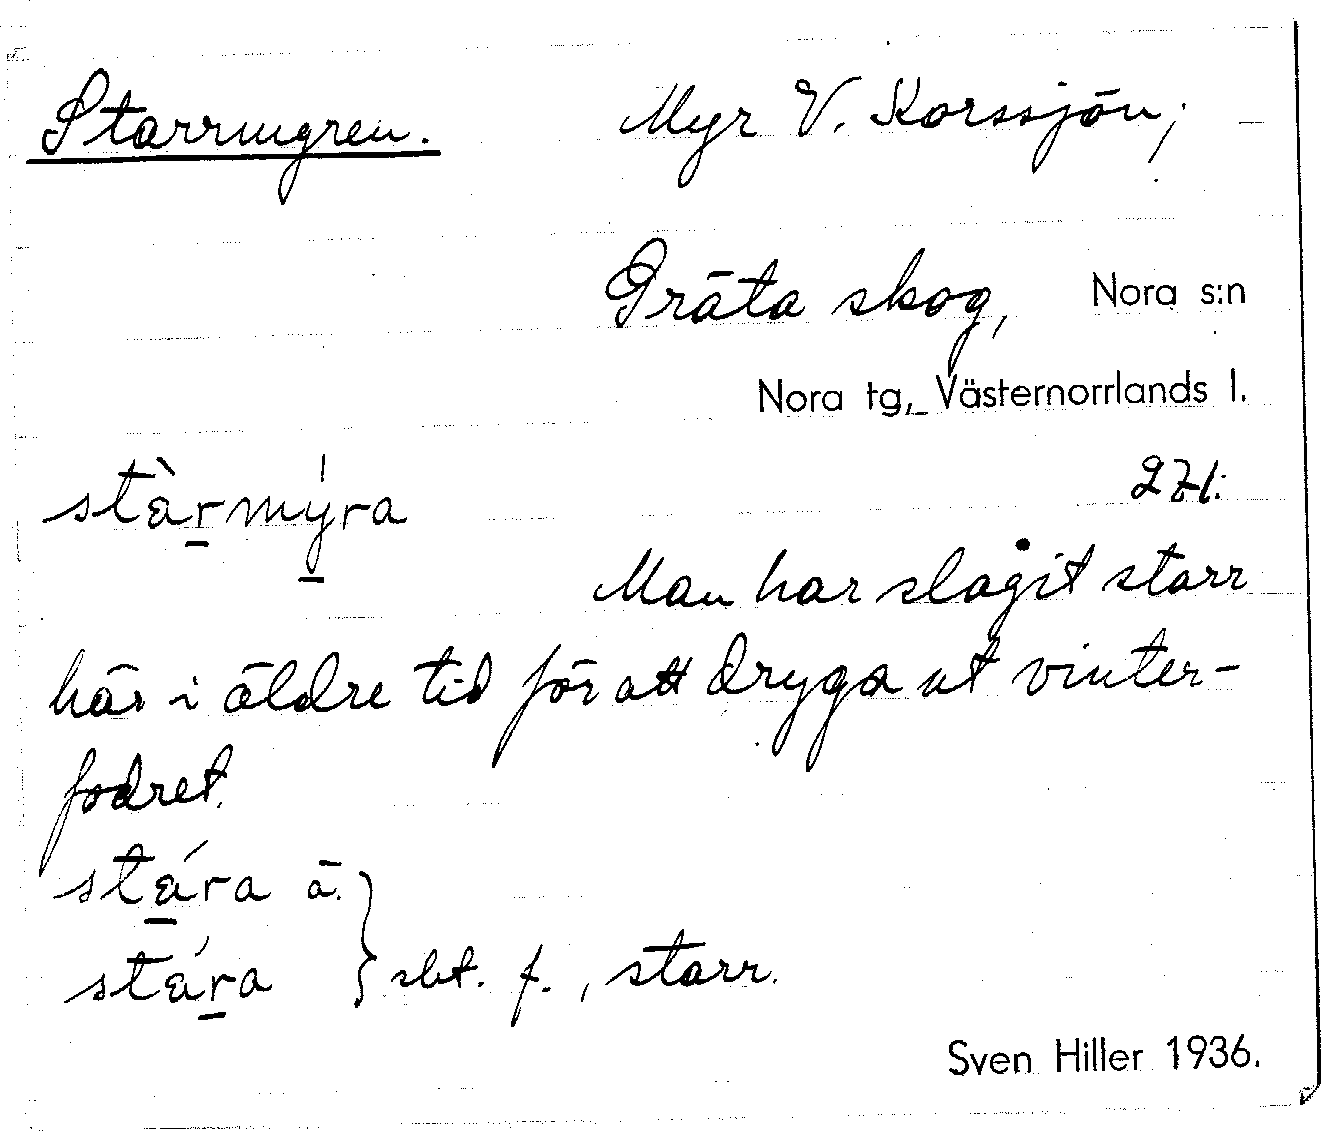 Starrmyren. Myr V. Korssjön;
Gräta skog, Nora s:n
Nora tg, Västernorrlands l.
stàrmýra 271.
Man har slagit starr
här i äldre tid för att dryga ut vinter-
fodret.
stára ä.
stára } sbt. f., starr.
Sven Hiller 1936.